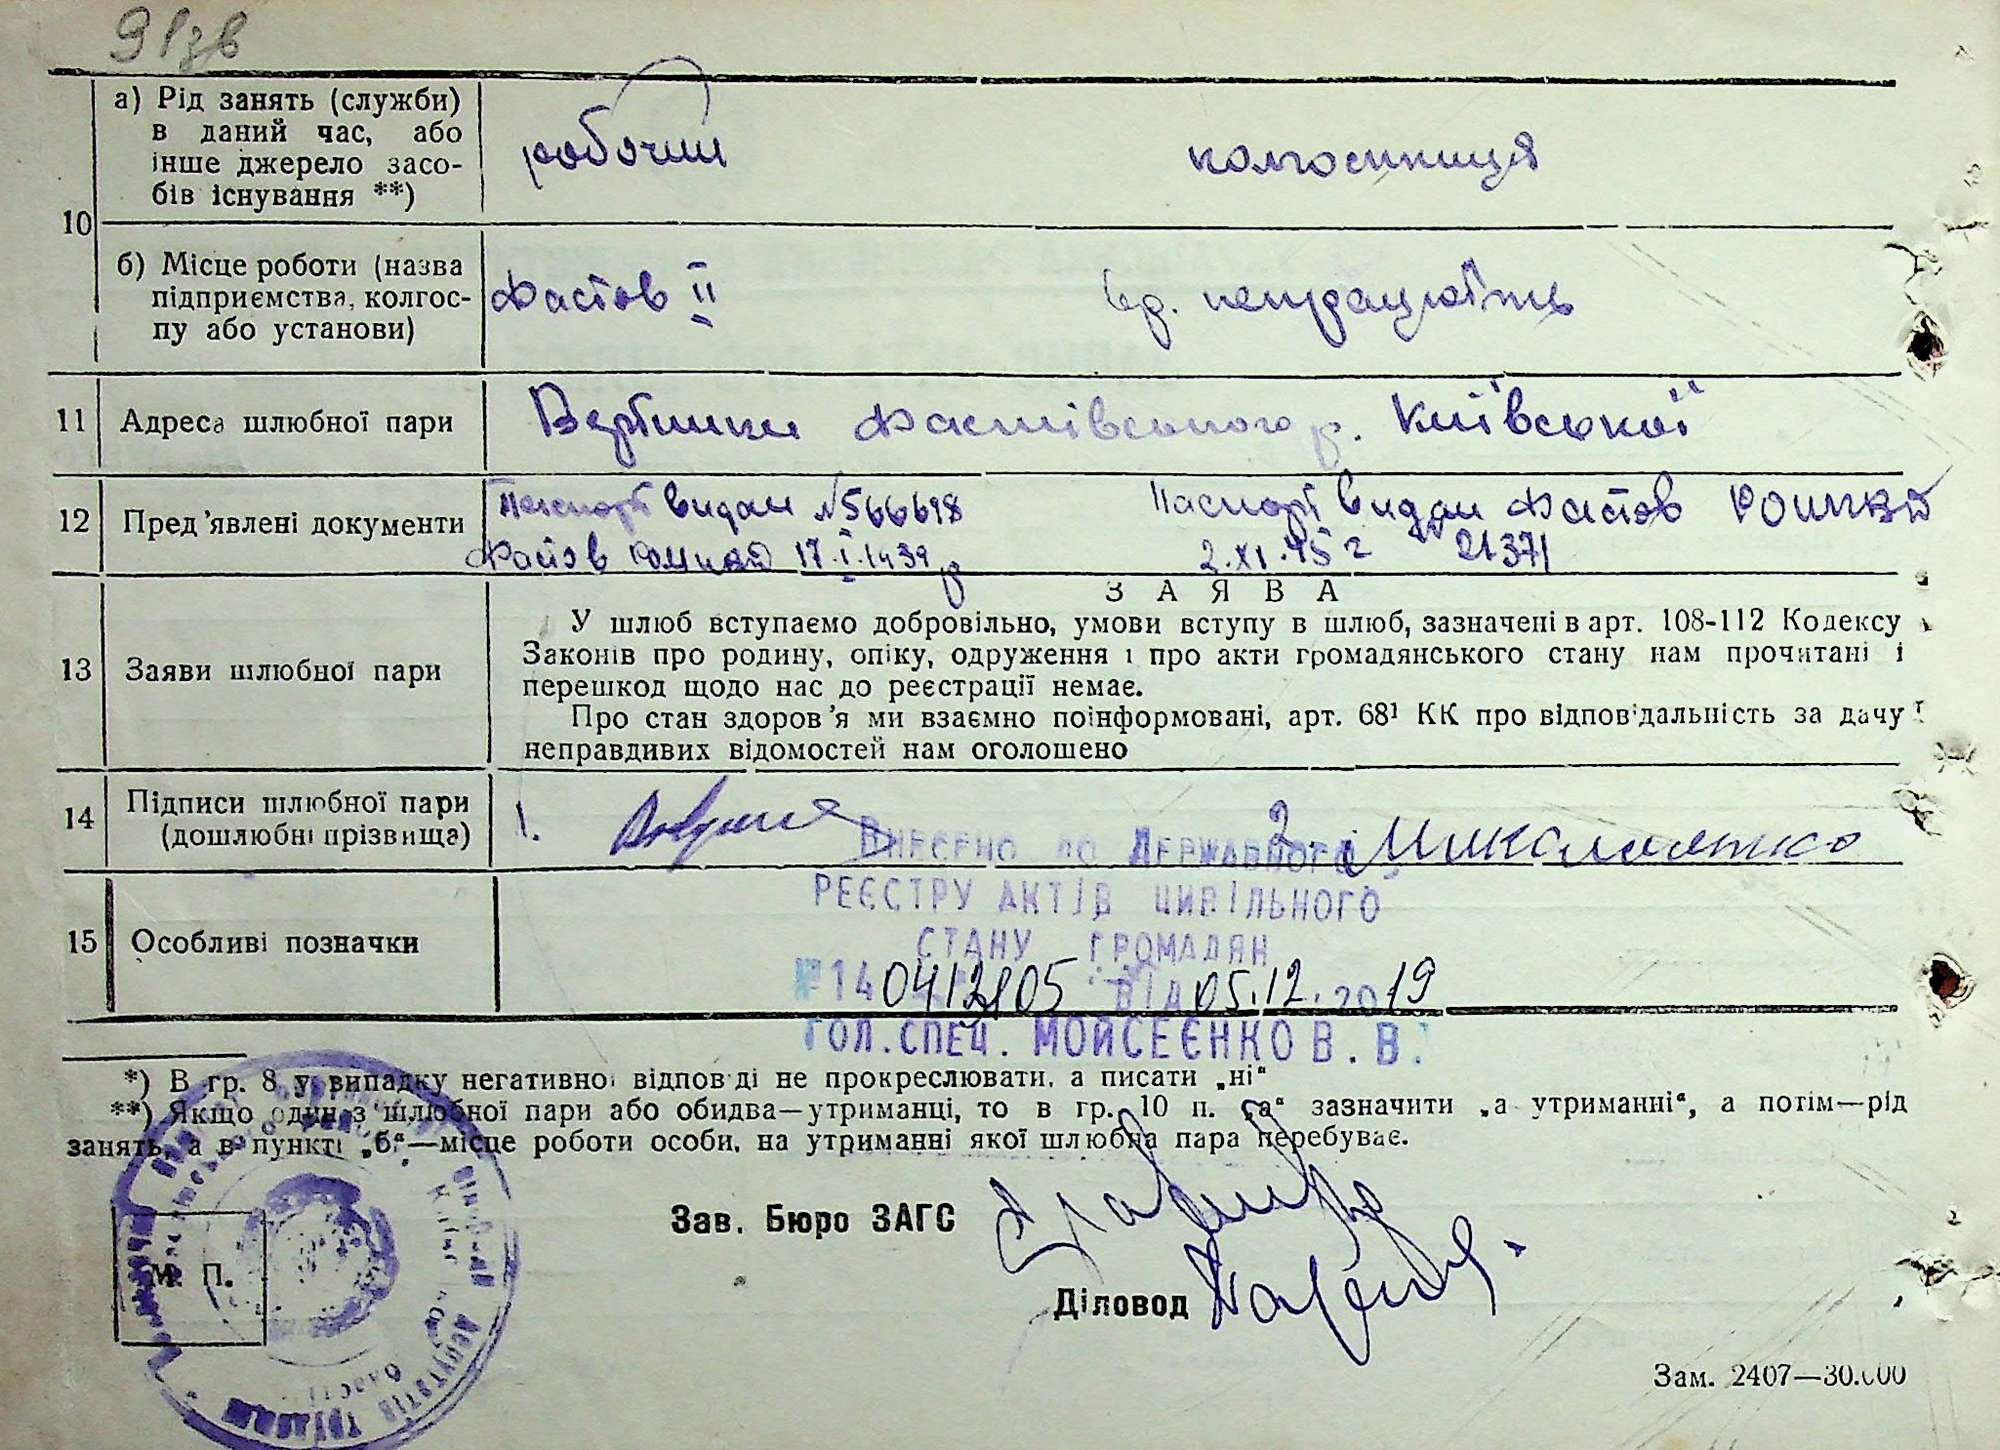 91зв
10
а) Рід занять (служби)
в даний час, або
інше джерело засо-
бів існування **)
робочий колгоспниця
б) Місце роботи (назва
підприємства, колгос-
пу або установи)
Фастов II непрацюють
11 Адреса шлюбної пари
Вербишки Фастівського р. Київської
12 Пред'явлені документи
Паспорт видан №566698 Паспорт видан Фастов
17.I.1939р 2.XI.45г 21371
13 Заяви шлюбної пари
ЗАЯВА
У шлюб вступаємо добровільно, умови вступу в шлюб, зазначені в арт. 108-112 Кодексу
Законів про родину, опіку, одруження і про акти громадянського стану нам прочитані і
перешкод щодо нас до реєстрації немає.
Про стан здоров'я ми взаємно поінформовані, арт. 68¹ КК про відповідальність за дачу
неправдивих відомостей нам оголошено
14 Підписи шлюбної пари
(дошлюбні прізвища)
1. 2. Миколаенко
15 Особливі позначки
ВНЕСЕНО ДО ДЕРЖАВНОГО
РЕЄСТРУ АКТІВ ЦИВІЛЬНОГО
СТАНУ ГРОМАДЯН
№140412805 ВІД 05.12.2019
ГОЛ.СПЕЦ. МОЙСЕЄНКО В.В.
*) В гр. 8 у випадку негативної відповіді не прокреслювати, а писати „ні“
**) Якщо один з шлюбної пари або обидва—утриманці, то в гр. 10 п. „а“ зазначити „а утриманні“, а потім—рід
занять, а в пункті „б“—місце роботи особи, на утриманні якої шлюбна пара перебуває.
Зав. Бюро ЗАГС
М. П.
Діловод
Депутатів Трудящих
Зам. 2407—30.000